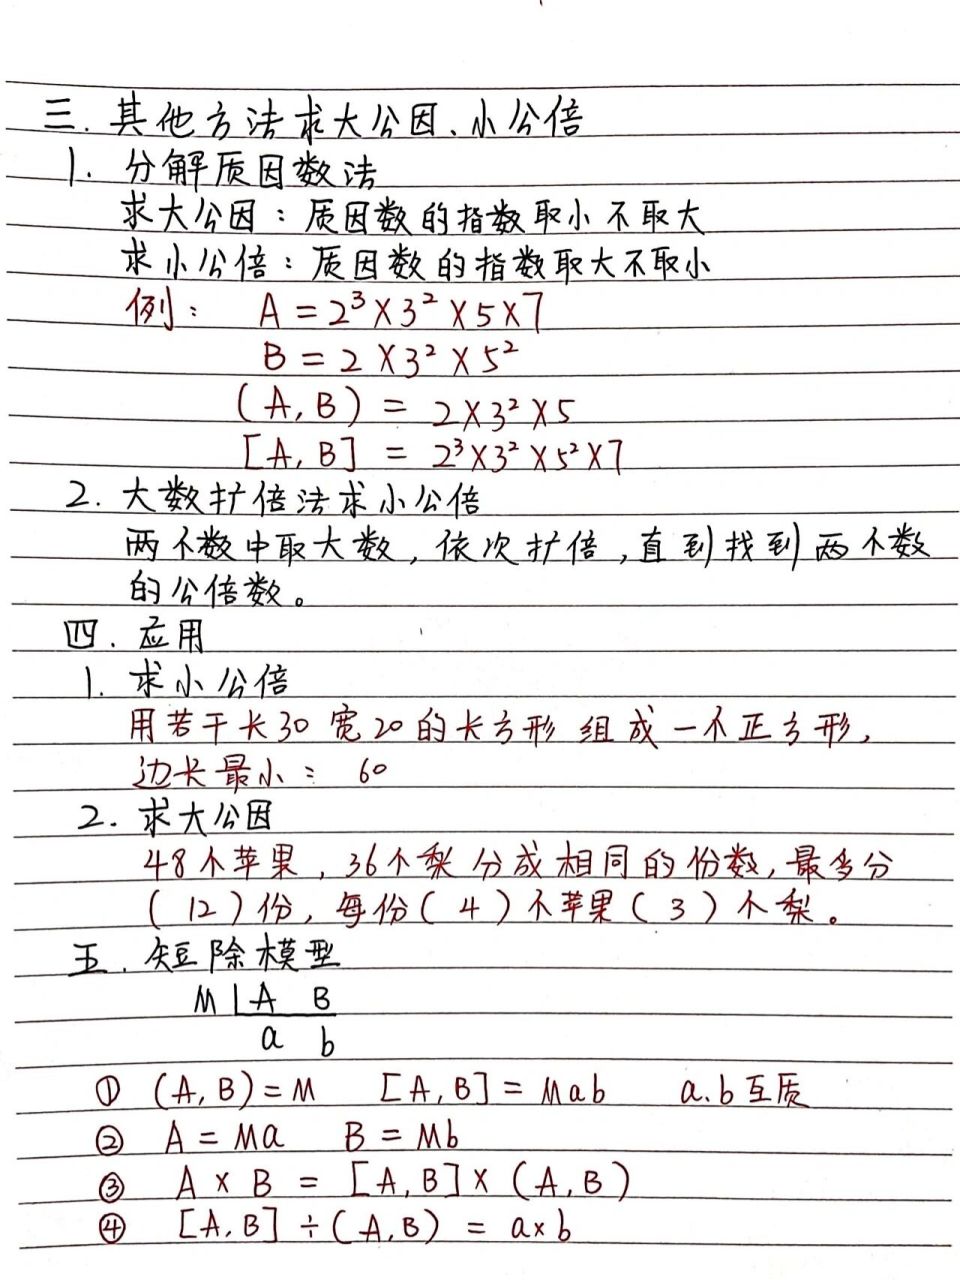 三. 其他方法求大公因、小公倍
1. 分解质因数法
求大公因：质因数的指数取小不取大
求小公倍：质因数的指数取大不取小
例： A = 2³×3²×5×7
B = 2×3²×5²
(A, B) = 2×3²×5
[A, B] = 2³×3²×5²×7
2. 大数扩倍法求小公倍
两个数中取大数，依次扩倍，直到找到两个数
的公倍数。
四. 应用
1. 求小公倍
用若干长30宽20的长方形组成一个正方形，
边长最小： 60
2. 求大公因
48个苹果，36个梨分成相同的份数，最多分
( 12 ) 份，每份( 4 )个苹果( 3 )个梨。
五. 短除模型
M | A B
a b
① (A, B) = M [A, B] = Mab a.b互质
② A = Ma B = Mb
③ A × B = [A, B] × (A, B)
④ [A, B] ÷ (A, B) = a×b